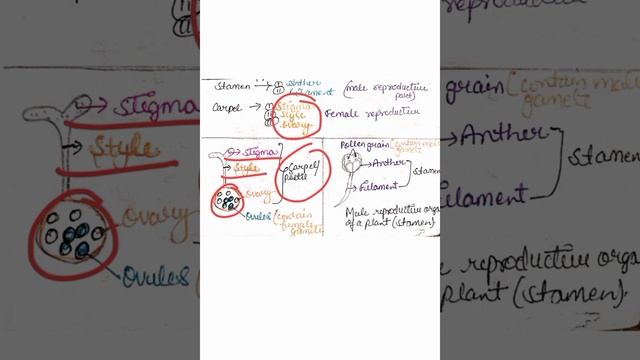 Stamen → (i) Anther
(ii) filament
(male reproductive part)
Carpel → (i) Stigma
(ii) Style
(iii) ovary
Female reproductive
Stigma
Style
ovary
Carpel/
ovules (contain
female
gamete
Pollen grain (contain male
gamete
Anther
Filament
Stamen
Male reproductive orga
of a plant (stamen)
Stigma
Style
ovary
ovules (
grain (contain mal
gamete
Anther
ilament
Stamen
e reproductive orga
plant (stamen).